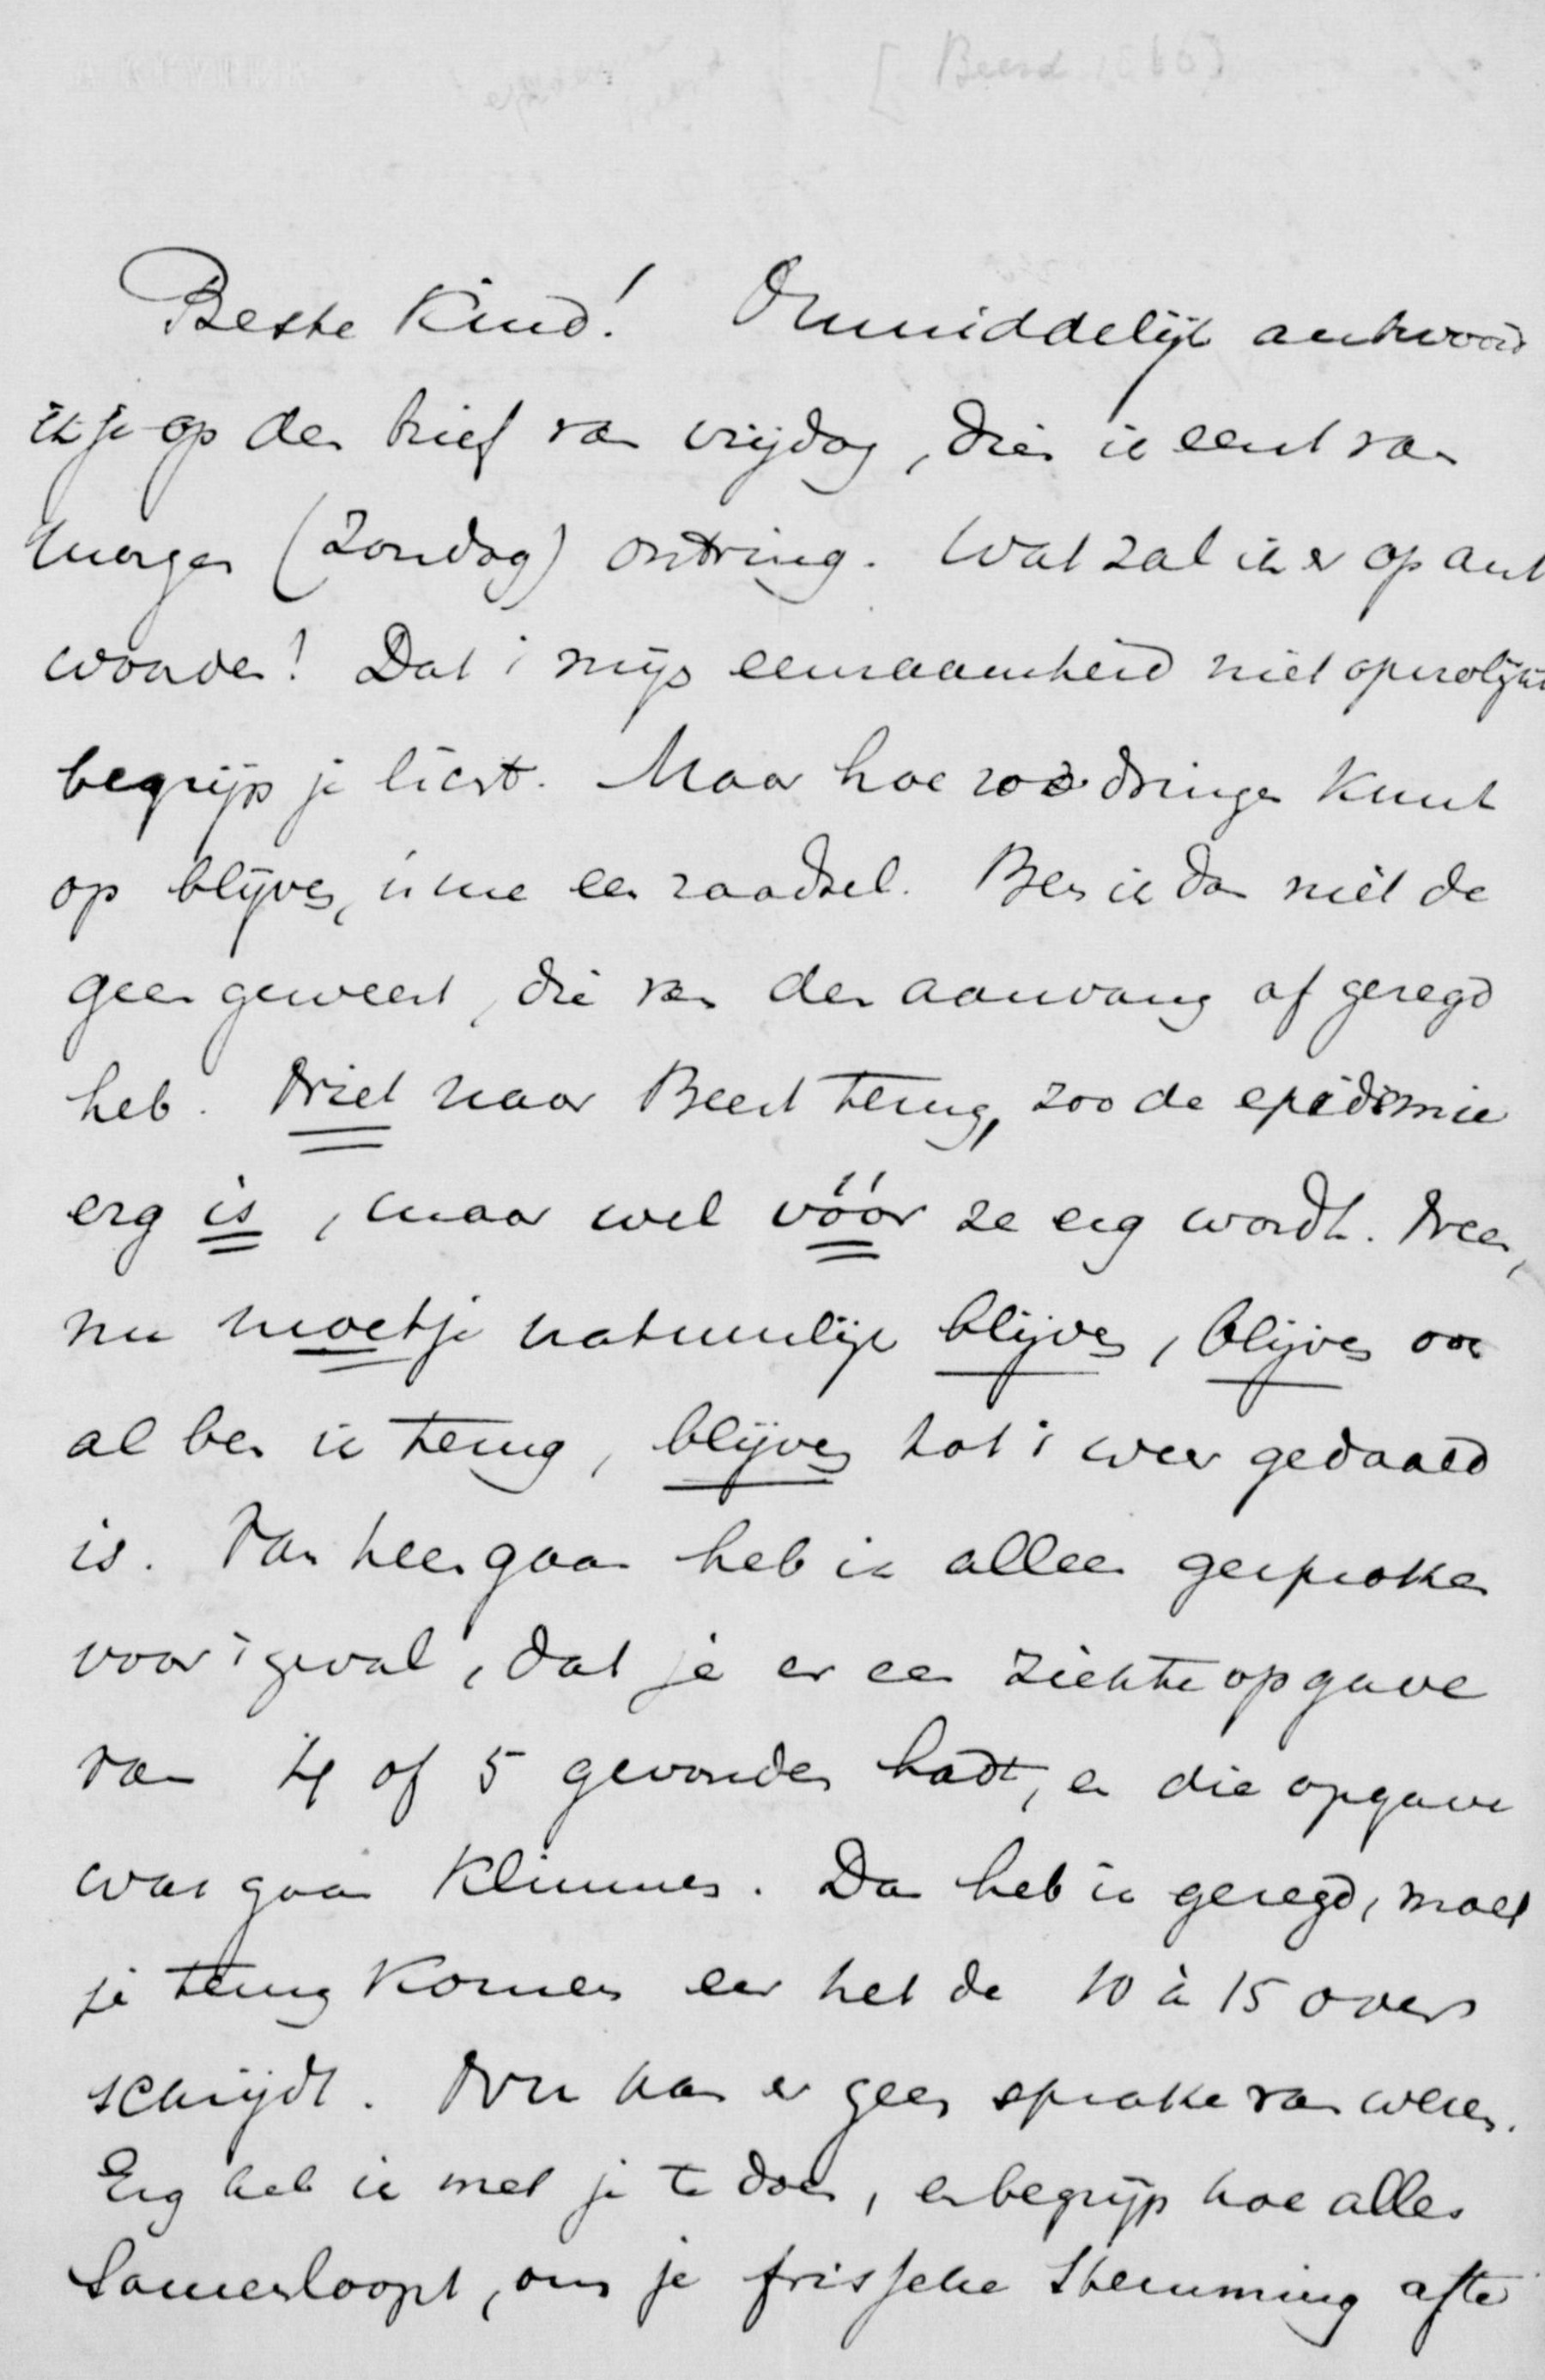 [Beesd 1866]
Beste Kind! Onmiddelijk antwoord
ik je op den brief van vrijdag, dien ik eerst van
morgen (Zondag) ontving. Wat zal ik er op ant
woorden! Dat i mijn eenzaamheid niet opvrolijkt
begrijp je licht. Maar hoe zoo dringen kunt
op blijven, is me een raadsel. Ben ik dan niet de
geen geweest, die van den aanvang af gezegd
heb. Niet naar Beest terug, zoo de epidemie
erg is, maar wel vóór ze erg wordt. Neen,
nu moet je natuurlijk blijven, blijven ook
al ben ik terug, blijven tot i weer gedaald
is. Van heengaan heb ik alleen gesproken
voor i geval, dat je er een ziekteopgave
van 4 of 5 gevonden hadt, en die opgave
was gaan klimmen. Dan heb ik gezegd, moet
je terug komen eer het de 10 à 15 over
schrijdt. Nu kan er geen sprake van wezen.
Erg heb ik met je te doen, en begrijp hoe alles
samenloopt, om je frissche stemming af te